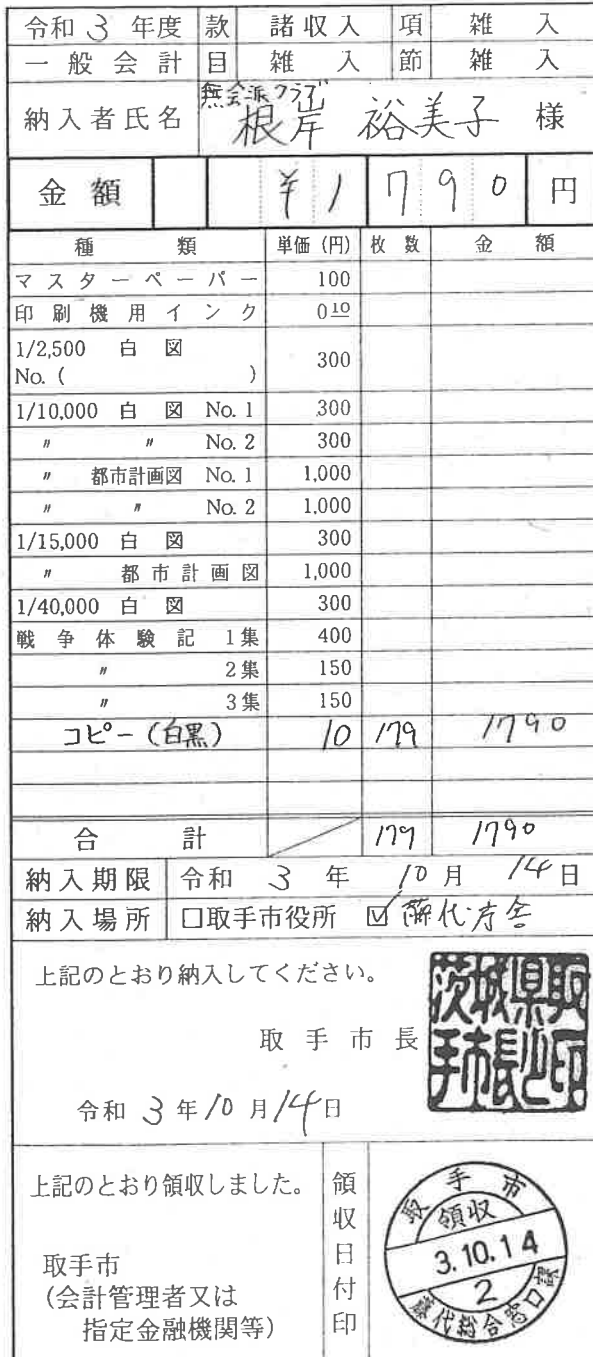 令和 3 年度 款 諸収入 項 雑入
一般会計 目 雑入 節 雑入
無会派クラブ
納入者氏名 根岸 裕美子 様
金額 ¥1790円
種類 単価(円) 枚数 金額
マスターペーパー 100
印刷機用インク 0.10
1/2,500 白図 300
No. ( )
1/10,000 白図 No. 1 300
〃 〃 No. 2 300
〃 都市計画図 No. 1 1,000
〃 〃 No. 2 1,000
1/15,000 白図 300
〃 都市計画図 1,000
1/40,000 白図 300
戦争体験記 1集 400
〃 2集 150
〃 3集 150
コピー(白黒) 10 179 1790
合計 179 1790
納入期限 令和 3 年 10 月 14 日
納入場所 □取手市役所 ☑藤代庁舎
上記のとおり納入してください。
取手市長
茨城県取手市長之印
令和 3 年 10 月 14 日
上記のとおり領収しました。
取手市
(会計管理者又は
指定金融機関等)
領収日付印
取手市
領収
3.10.14
2
藤代総合窓口課